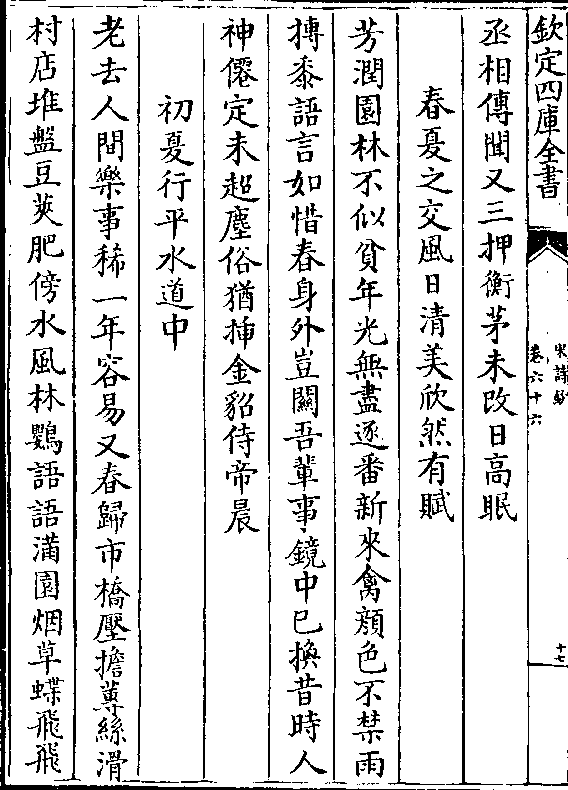 欽定四庫全書
宋詩鈔
卷六十六
十七
丞相傳聞又三押衡茅未改日高眠
春夏之交風日清美欣然有賦
芳潤園林不似貧年光無盡逐番新來禽顔色不禁雨
摶黍語言如惜春身外豈關吾輩事鏡中已換昔時人
神僊定未超塵俗猶揷金貂侍帝晨
初夏行平水道中
老去人間樂事稀一年容易又春歸市橋壓擔蓴絲滑
村店堆盤豆莢肥傍水風林鸎語語滿園烟草蝶飛飛